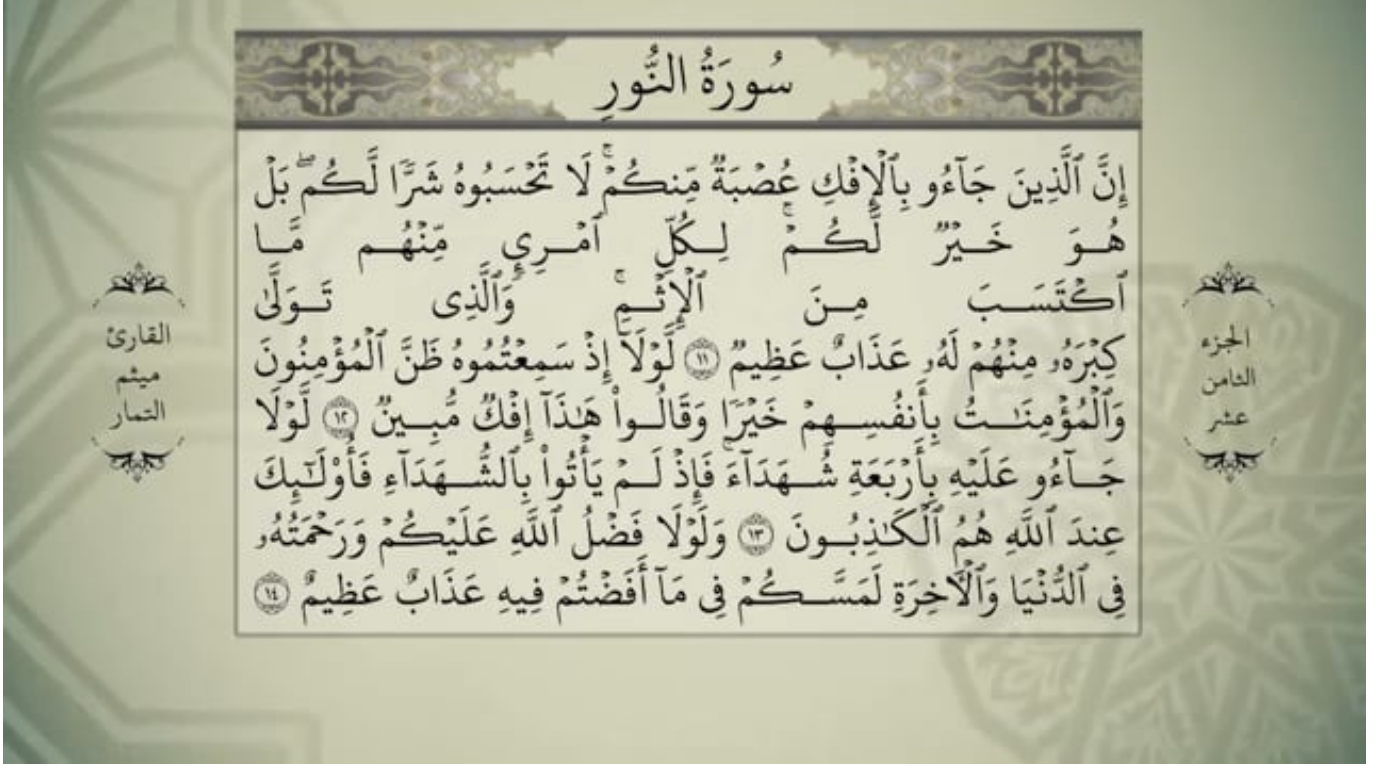 سُورَةُ النُّورِ
إِنَّ ٱلَّذِينَ جَآءُو بِٱلْإِفْكِ عُصْبَةٌ مِّنكُمْ ۚ لَا تَحْسَبُوهُ شَرًّا لَّكُم ۖ بَلْ
هُوَ خَيْرٌ لَّكُمْ ۚ لِكُلِّ ٱمْرِئٍ مِّنْهُم مَّا
ٱكْتَسَبَ مِنَ ٱلْإِثْمِ ۚ وَٱلَّذِى تَوَلَّىٰ
كِبْرَهُۥ مِنْهُمْ لَهُۥ عَذَابٌ عَظِيمٌ ١١ لَّوْلَآ إِذْ سَمِعْتُمُوهُ ظَنَّ ٱلْمُؤْمِنُونَ
وَٱلْمُؤْمِنَـٰتُ بِأَنفُسِهِمْ خَيْرًا وَقَالُوا۟ هَـٰذَآ إِفْكٌ مُّبِينٌ ١٢ لَّوْلَا
جَآءُو عَلَيْهِ بِأَرْبَعَةِ شُهَدَآءَ ۚ فَإِذْ لَمْ يَأْتُوا۟ بِٱلشُّهَدَآءِ فَأُو۟لَـٰٓئِكَ
عِندَ ٱللَّهِ هُمُ ٱلْكَـٰذِبُونَ ١٣ وَلَوْلَا فَضْلُ ٱللَّهِ عَلَيْكُمْ وَرَحْمَتُهُۥ
فِى ٱلدُّنْيَا وَٱلْـَٔاخِرَةِ لَمَسَّكُمْ فِى مَآ أَفَضْتُمْ فِيهِ عَذَابٌ عَظِيمٌ ١٤
الجزء
الثامن
عشر
القارئ
ميثم
التمار